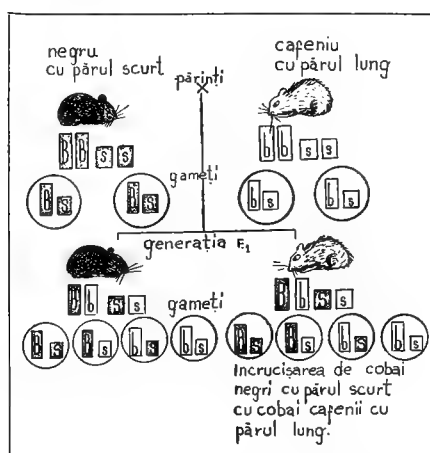 negru
cu părul scurt
părinți
cafeniu
cu părul lung
B B s s
b b s s
gameți
B s
B s
b s
b s
generația F1
B b s s
gameți
B b s s
B s
B s
b s
b s
B s
B s
b s
b s
Incrucișarea de cobai
negri cu părul scurt
cu cobai cafenii cu
părul lung.